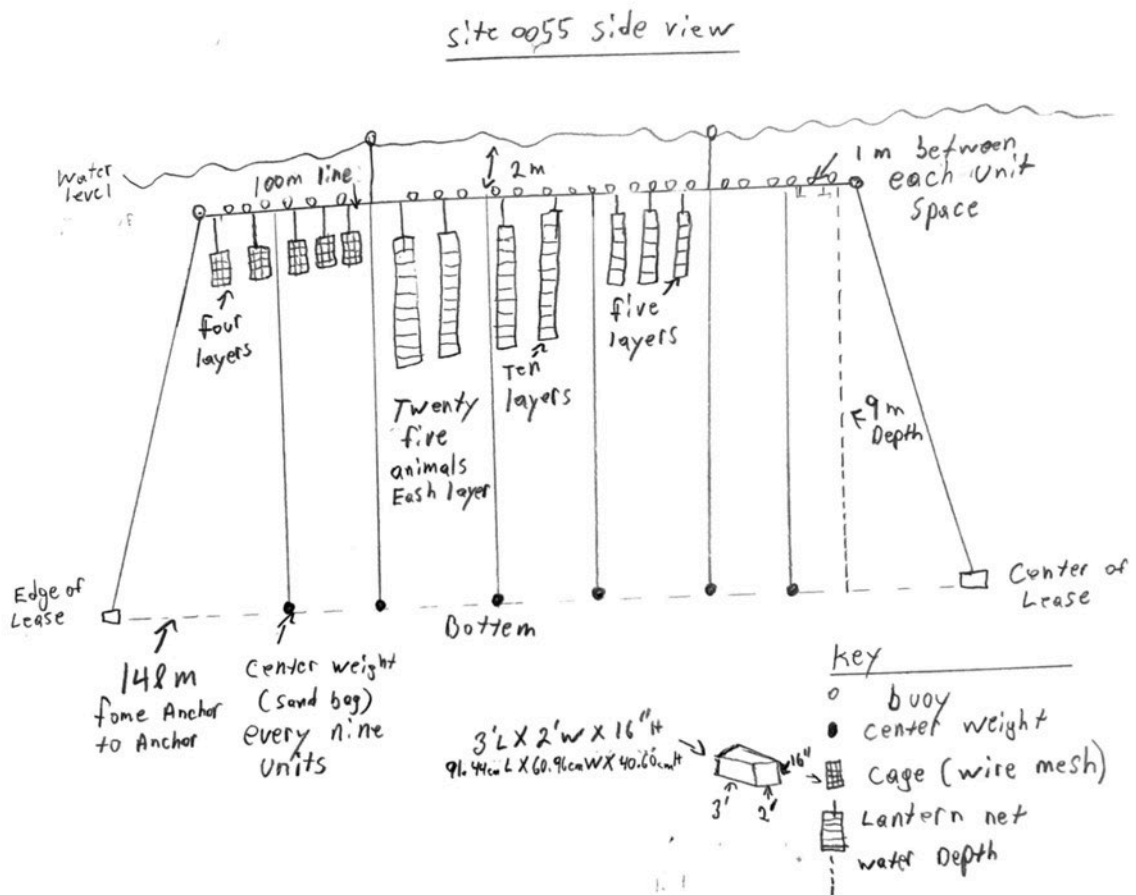 site 0055 side view
Water
level
100m line
2m
1 m between
each unit
space
four
layers
Twenty
five
animals
Eash layer
Ten
layers
five
layers
9m
Depth
Edge of
Lease
Center of
Lease
Bottem
148m
fome Anchor
to Anchor
Center weight
(sand bag)
every nine
units
3'L X 2'W X 16"H
91.44cm L X 60.96cm W X 40.60cm H
16"
3'
2'
key
buoy
center weight
cage (wire mesh)
Lantern net
water Depth